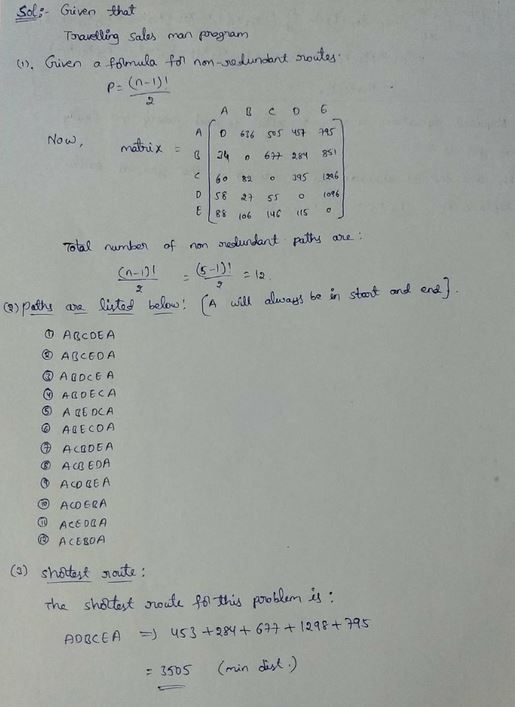 Sol:- Given that
Travelling sales man program
(1). Given a formula for non-redundant routes.
P = (n-1)!
2
A B C D E
Now, matrix =
A 0 636 505 457 795
B 34 0 677 284 851
C 60 82 0 395 1296
D 58 27 55 0 1096
E 88 106 146 115 0
Total number of non redundant paths are :
(n-1)! = (5-1)! = 12.
2 2
(2) paths are listed below: [A will always be in start and end].
① ABCDEA
② ABCEDA
③ ABDCEA
④ ABDECA
⑤ ABEDCA
⑥ ABECDA
⑦ ACBDEA
⑧ ACBEDA
⑨ ACDBEA
⑩ ACDEBA
⑪ ACEDBA
⑫ ACEBDA
(3) shortest route :
The shortest route for this problem is :
ADBCEA => 453 + 284 + 677 + 1298 + 795
= 3505 (min dist.)